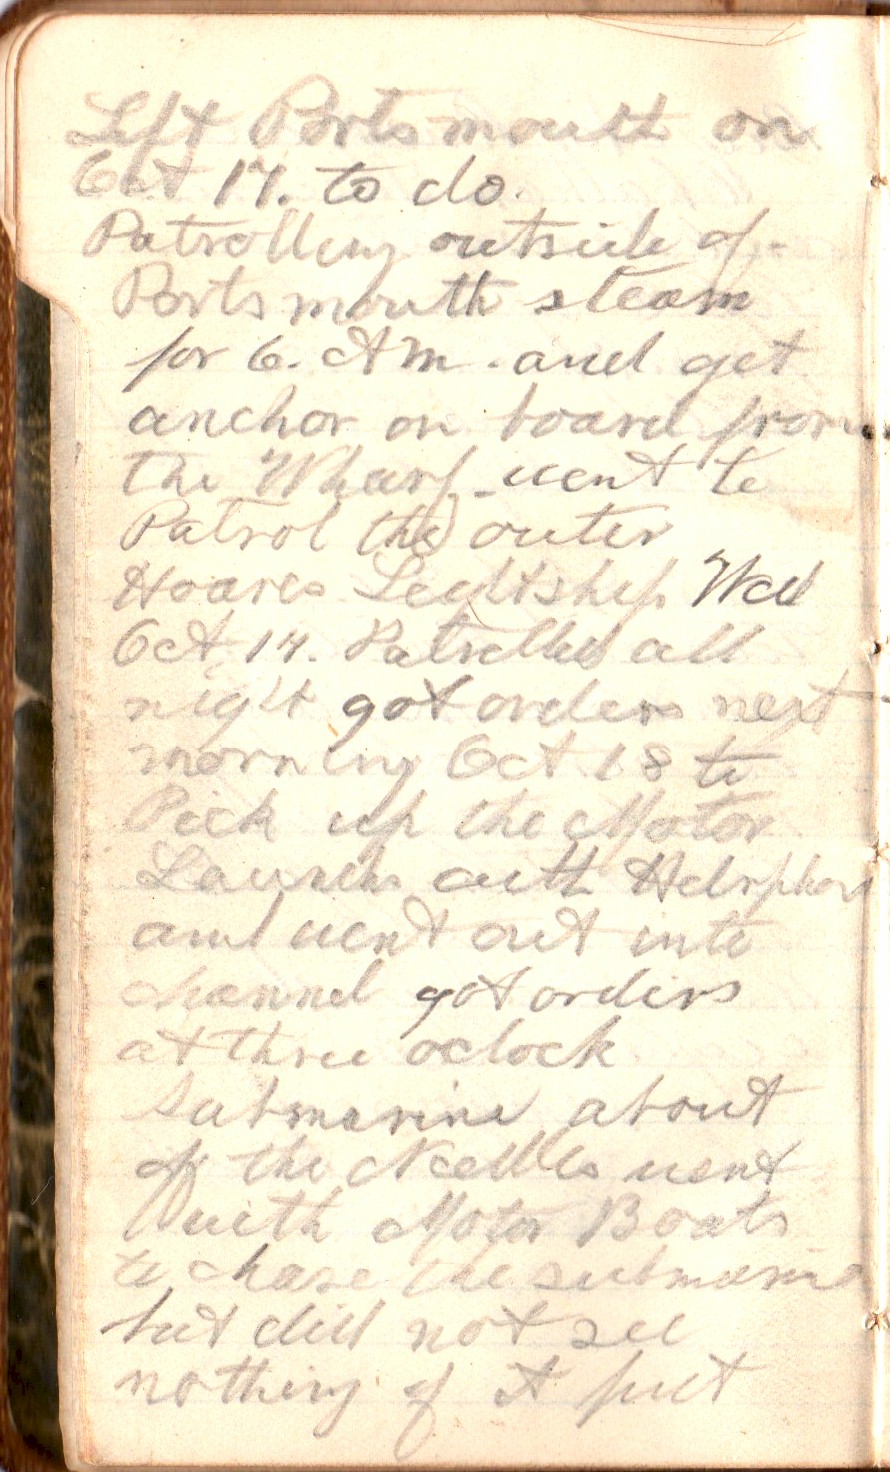 Left Portsmouth on
Oct 17. to do.
Patrolling outside of
Portsmouth steam
for 6. AM. and get
anchor on board from
the Wharf went to
Patrol the outer
Hoares Leightship Wed
Oct 17. Patrolled all
night got orders next
morning Oct 18 to
Pick up the Motor
Launch with
and went out into
channel got orders
at three oclock
submarine about
off the Needles went
with Motor Boats
to chase the submarine
but did not see
nothing of it put